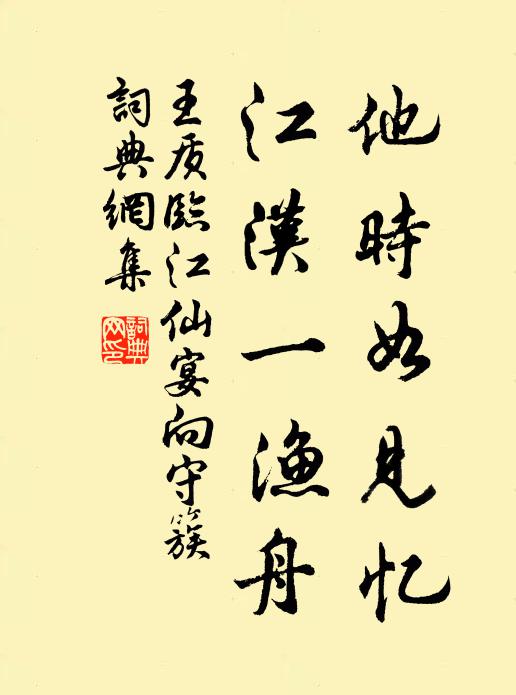 他時如见忆
江漢一漁舟
王质臨江仙宴向守簇
詞典網集
詞典网印